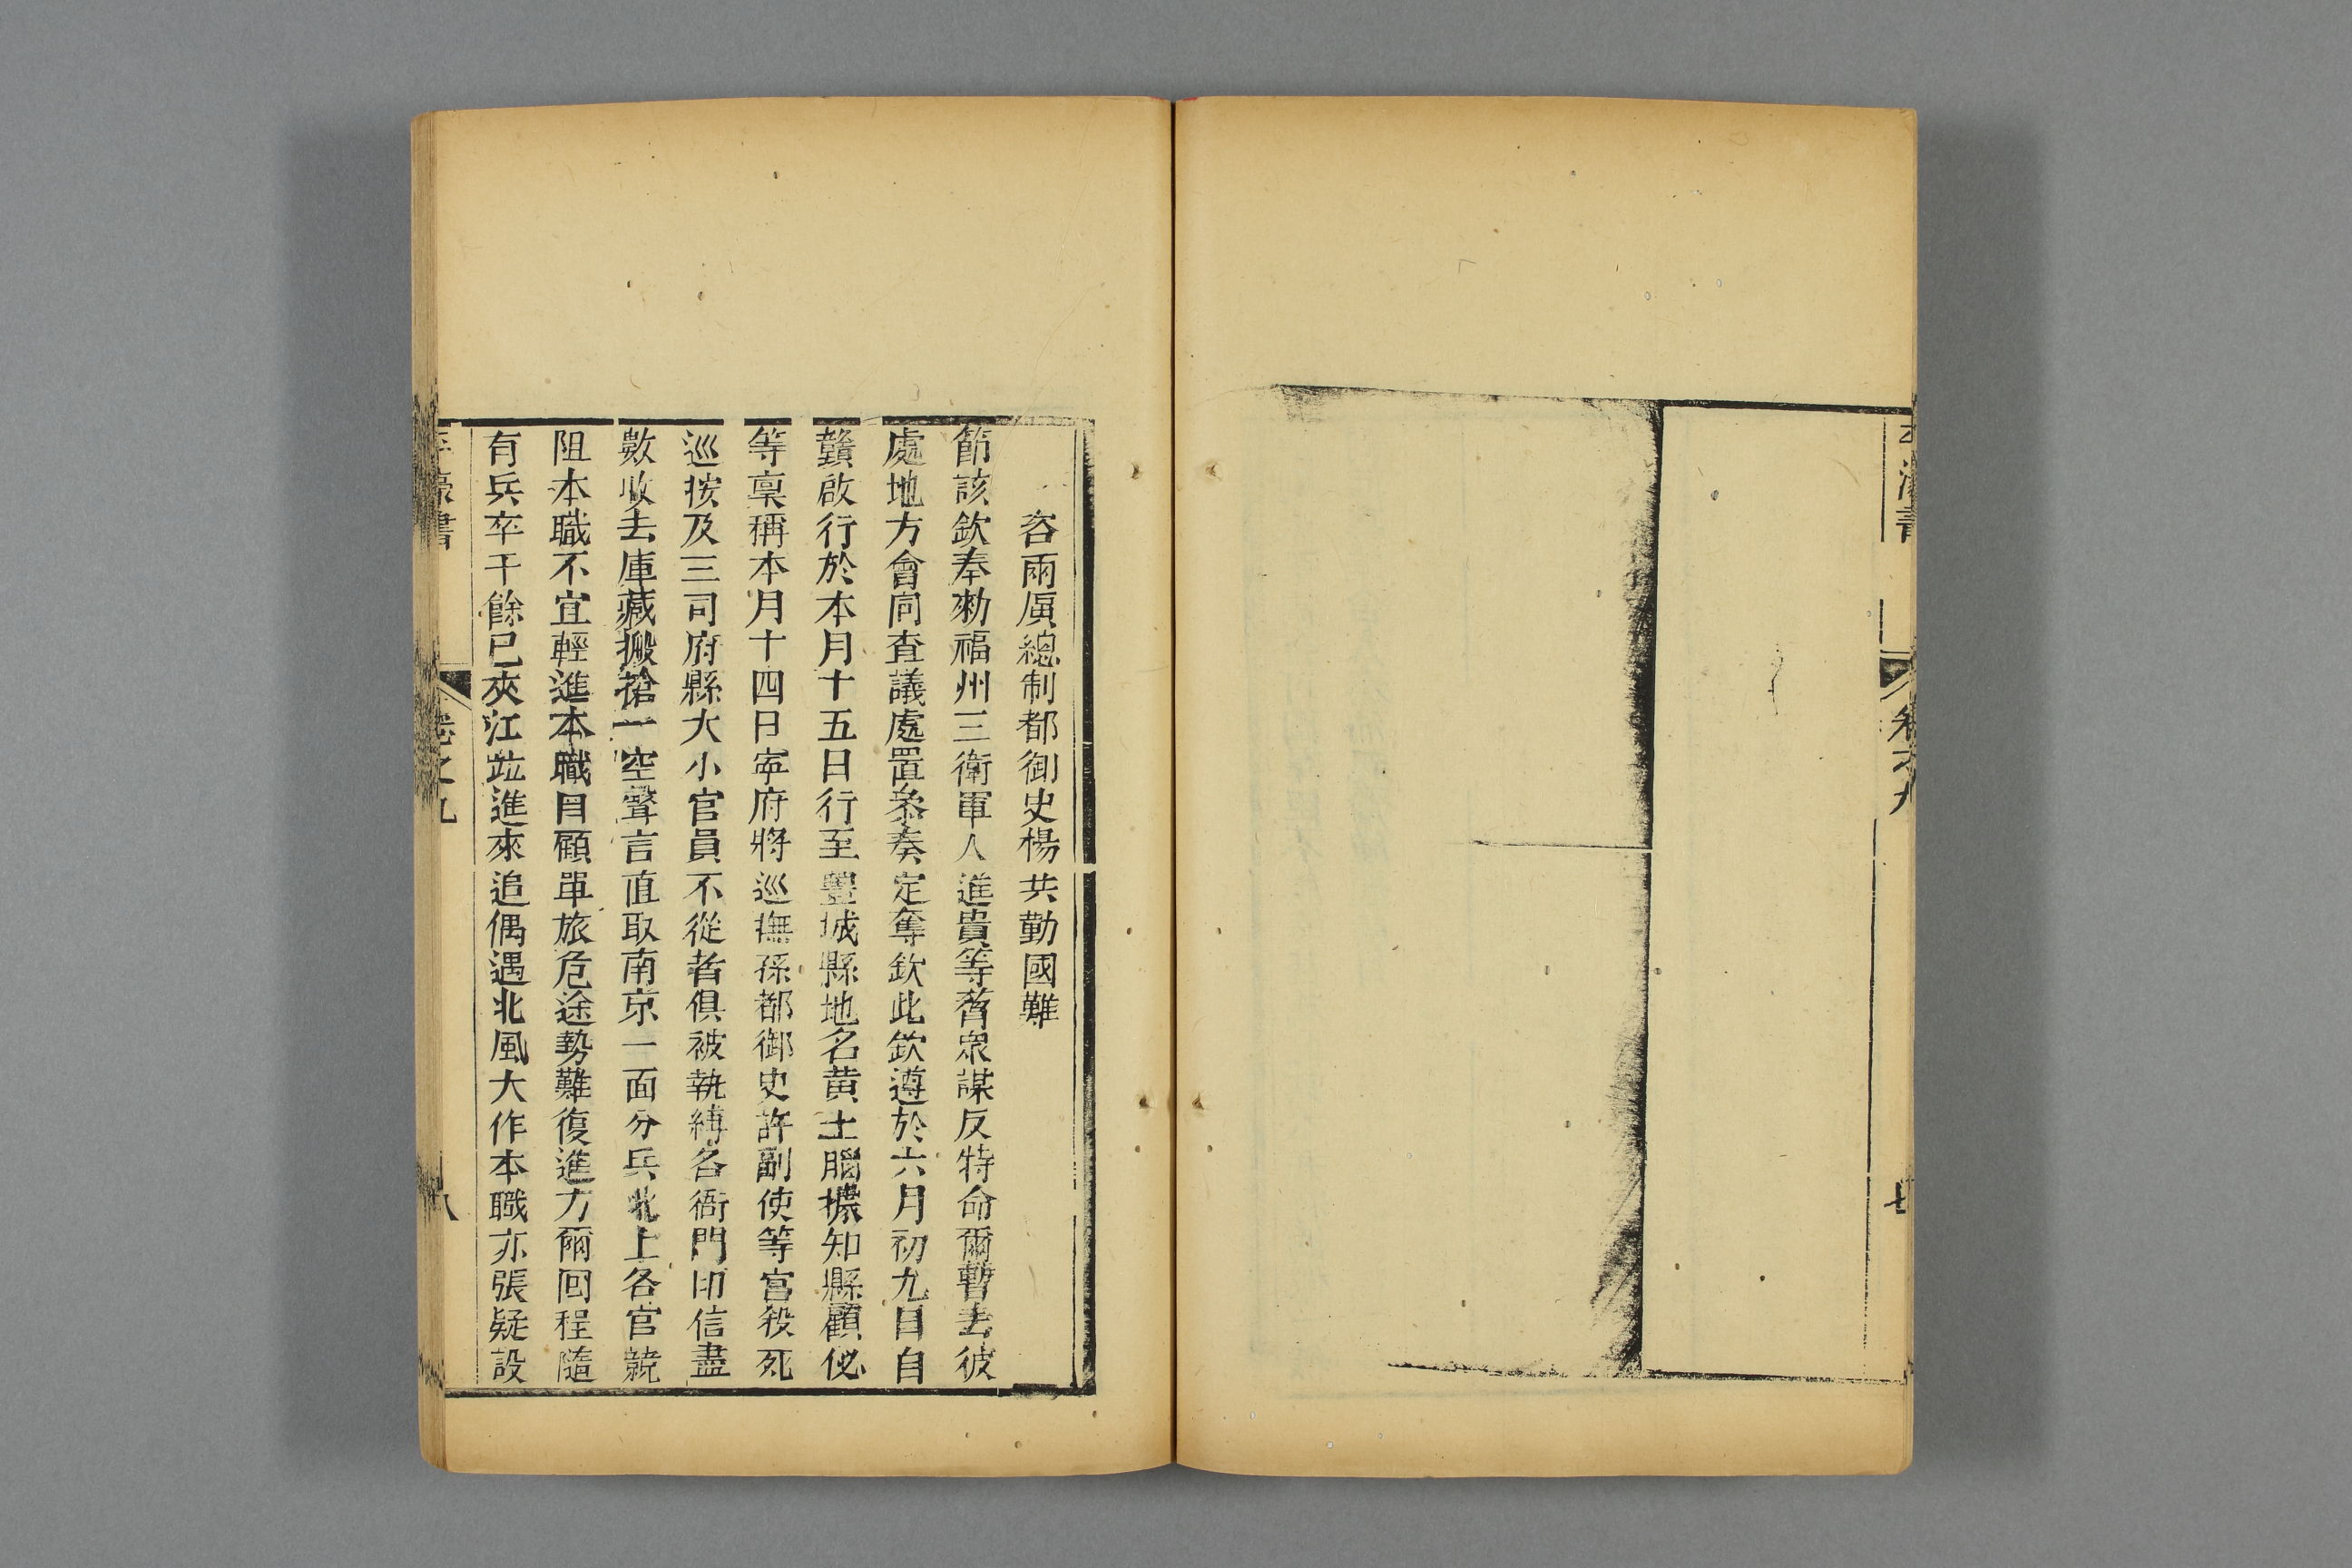 咨兩廣總制都御史楊共勤國難
節該欽奉勑福州三衛軍人進貴等脅衆謀反特命爾暫去彼
處地方會同查議處置叅奏定奪欽此欽遵於六月初九日自
贛啟行於本月十五日行至豐城縣地名黄土腦據知縣顧佖
等禀稱本月十四日寧府將巡撫孫都御史許副使等官殺死
巡按及三司府縣大小官員不從者俱被執縛各衙門印信盡
數收去庫藏搬搶一空聲言直取南京一面分兵北上各官競
阻本職不宜輕進本職自顧單旅危途勢難復進方爾回程隨
有兵卒千餘已夾江並進來追偶遇北風大作本職亦張疑設
平濠書
卷之九
八